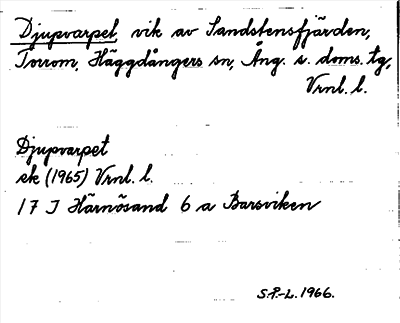 Djupvarpet, vik av Sandstensfjärden,
Torrom, Häggdångers sn, Ång. s. doms. tg,
Vrnl. l.
Djupvarpet
ek (1965) Vrnl. l.
17 J Härnösand 6 a Barsviken
S.P.-L. 1966.